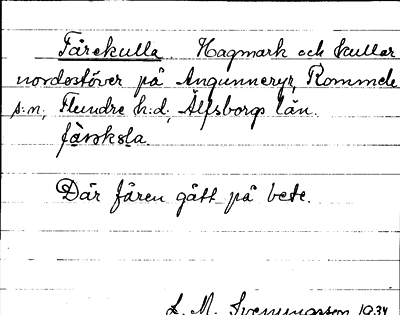 Fårekulla Hagmark och kullar
nordostöver på Angunneryr, Rommele
s:n, Flundre h:d, Älfsborgs län.
Där fåren gått på bete.
L. M. Svenungsson 1934